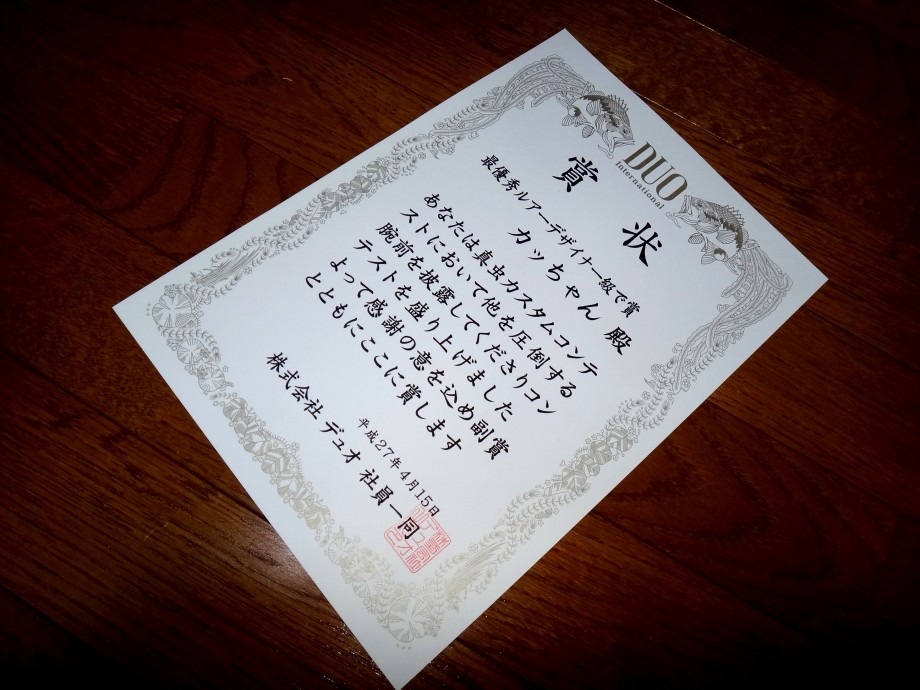 DUO
International
賞状
最優秀ルアーデザイナー級で賞
カッちゃん 殿
あなたは真虫カスタムコンテ
ストにおいて他を圧倒する
腕前を披露してくださりコン
テストを盛り上げました
よって感謝の意を込め副賞
とともにここに賞します
平成27年4月15日
株式会社 デュオ 社員一同